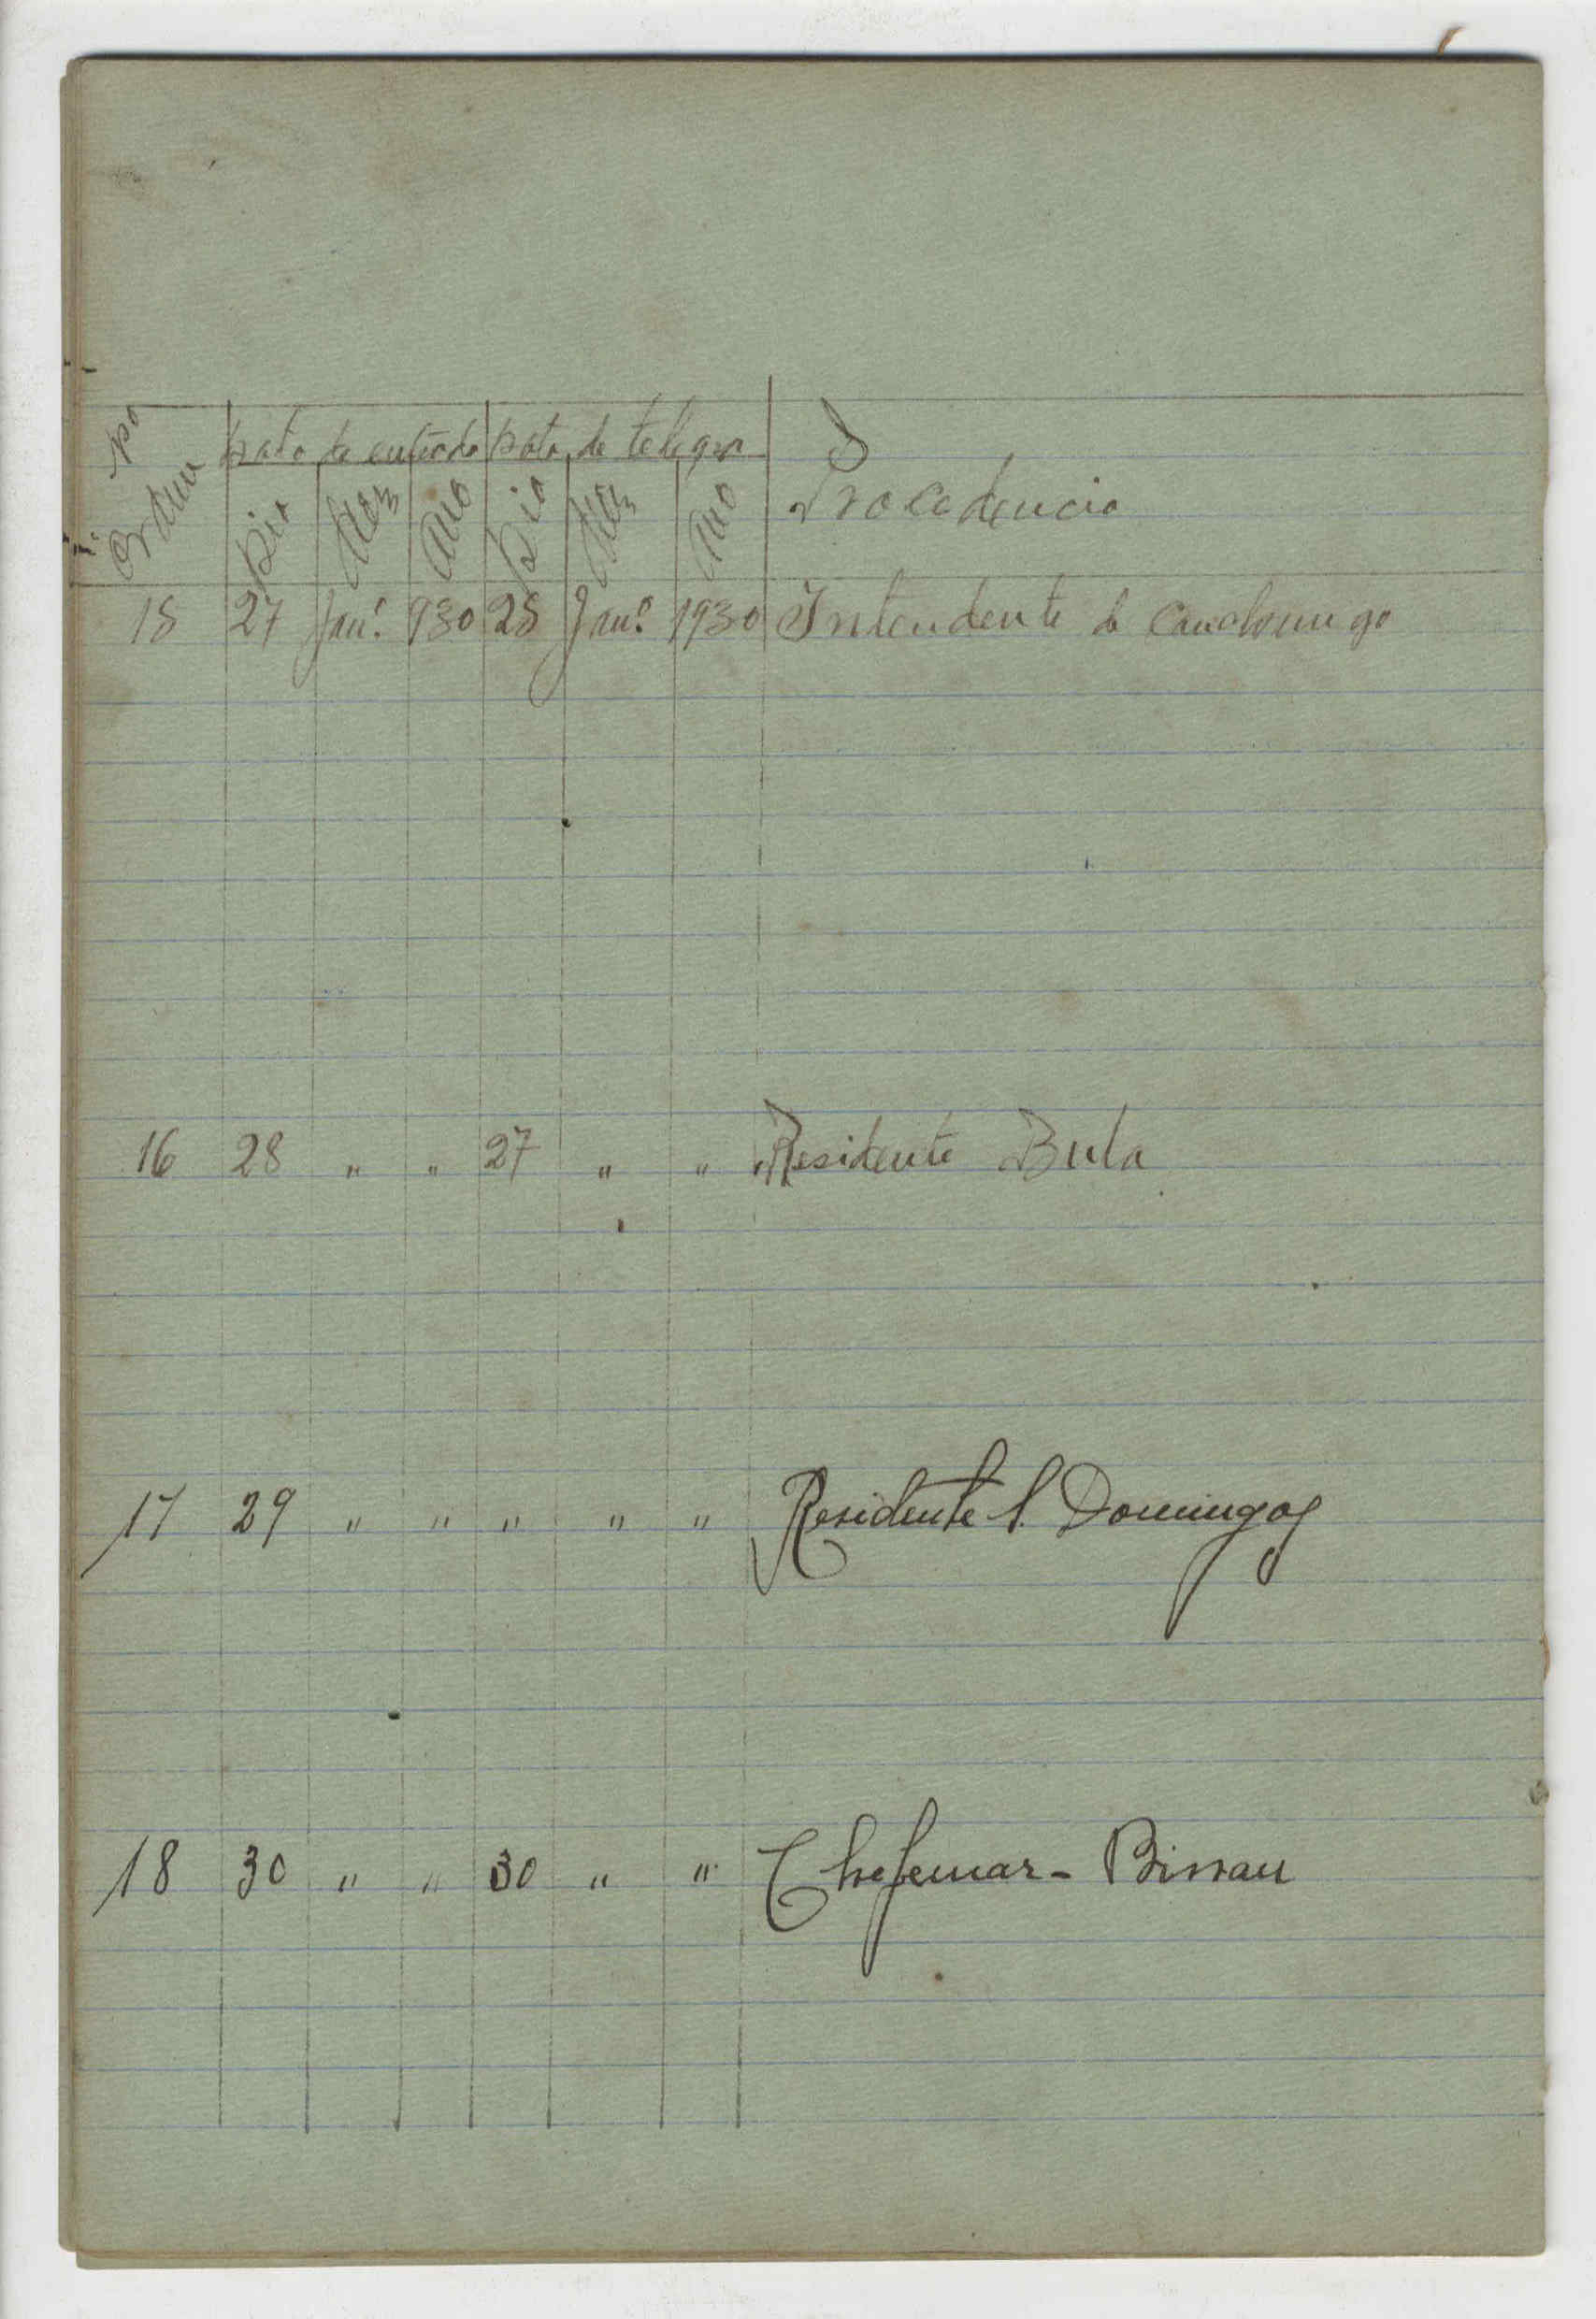 Nº Ordem
Data de entrada Data de telegra
Dia Mez Ano Dia Mez Ano Procedencia
15 27 Janº 930 25 Janº 1930 Intendente de Canchungo
16 28 " " 27 " " Residente Bula
17 29 " " " " " Residente S. Domingos
18 30 " " 30 " " Chefemar - Bissau